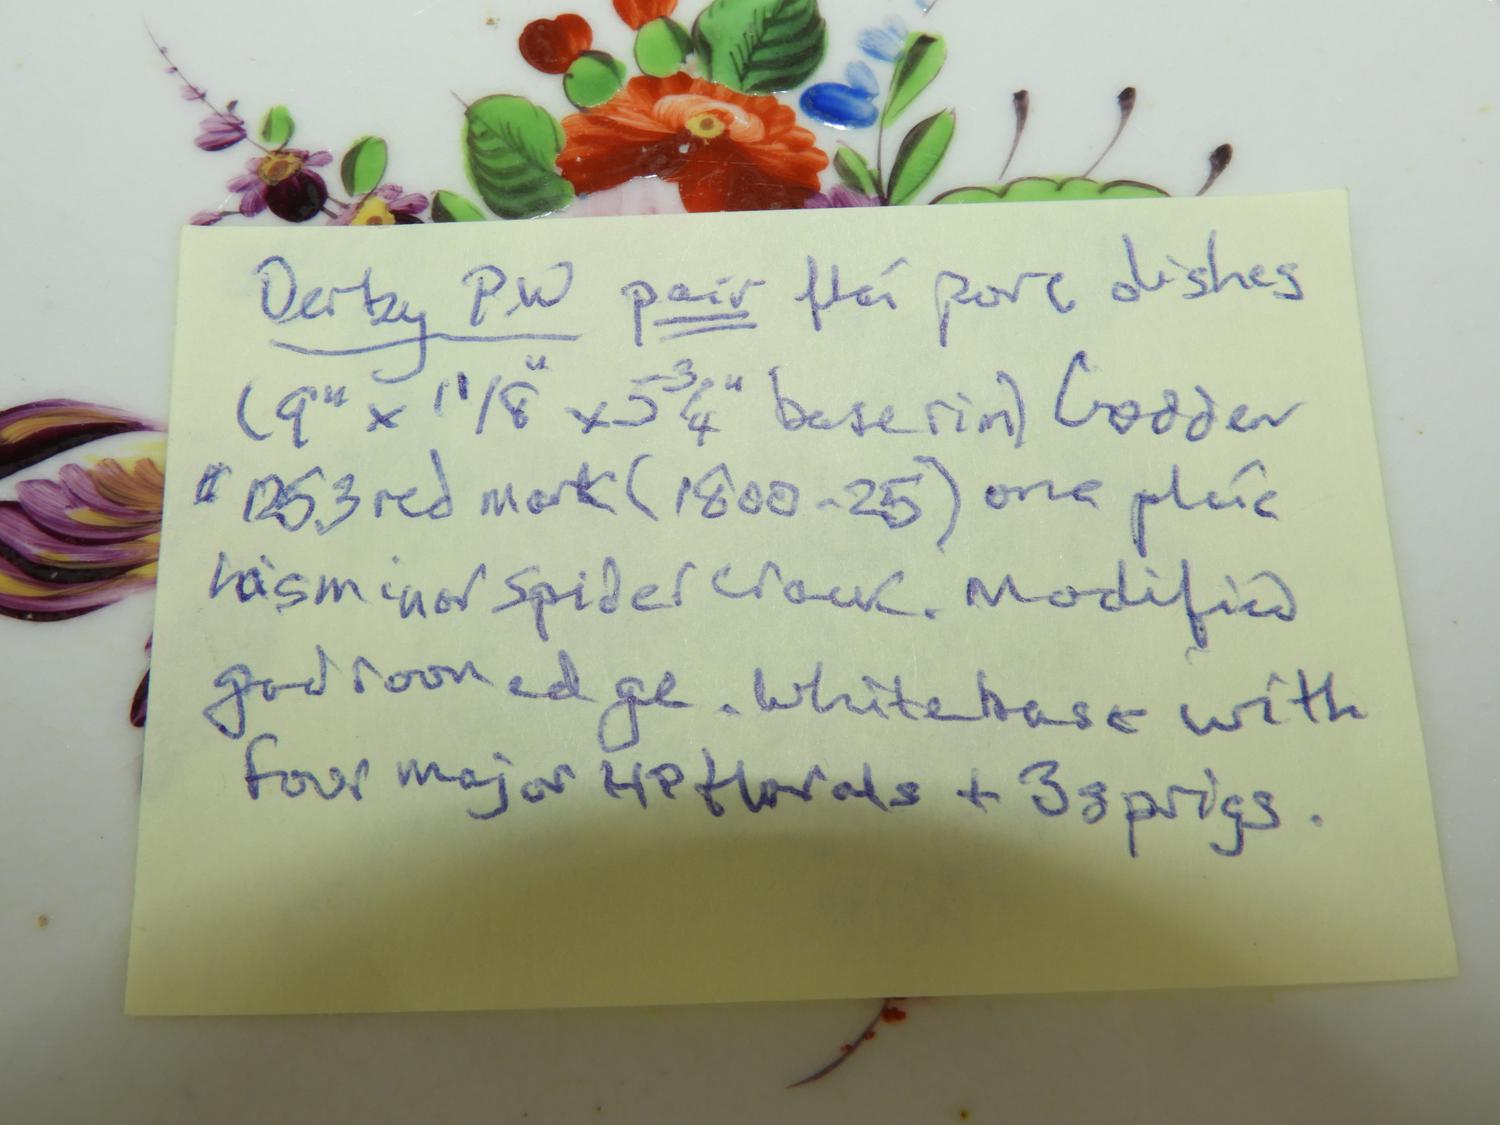 Derby PW pair flat porc dishes
(9" x 1 1/8" x 5 3/4" base rim) Godden
# 1253 red mark (1800-25) one plate
has minor spider crack. Modified
gadroon edge. White base with
four major HP florals + 3 sprigs.